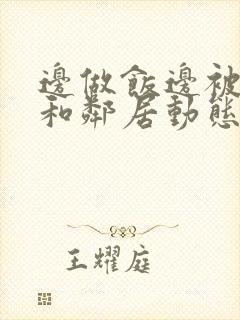 邊做飯邊被
和鄰居動態
王耀庭